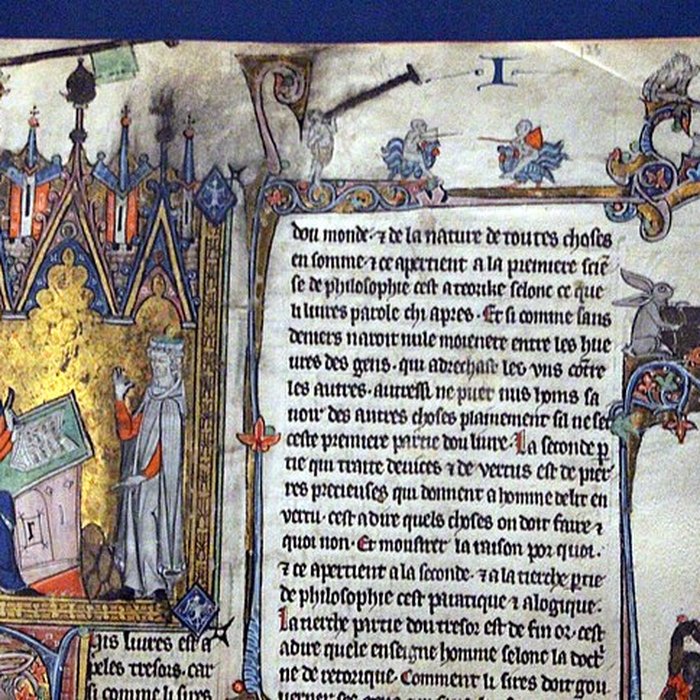 Chis liures est a
peles tresors. car
si comme li sires
I
dou monde. ⁊ de la nature de toutes choses
en somme ⁊ ce apertient a la premiere sciẽ
se de philosophie cest a teorike selonc ce que
li liures parole chi apres. Et si comme sans
deniers naroit nule moienete entre les hue
ures des gens. qui adrechast les vns cõtre
les autres. autressi ne puet nus homs sa
uoir des autres choses plainement sil ne set
ceste premiere partie dou liure. La seconde p
tie qui traite deuices ⁊ de vertus est de pier
res precieuses qui donnent a homme delit en
vertu. cest a dire quels choses on doit faire ⁊
quoi non. Et monstret la raison por quoi.
⁊ ce apertient a la seconde. ⁊ a la tierche ptie
de philosophie cest pratique ⁊ a logique.
La tierche partie dou tresor est de fin or. cest
a dire quele enseigne homme selonc la doctͥ
ne de retorique. Comment li sires doit gou
uerner ses gens qui